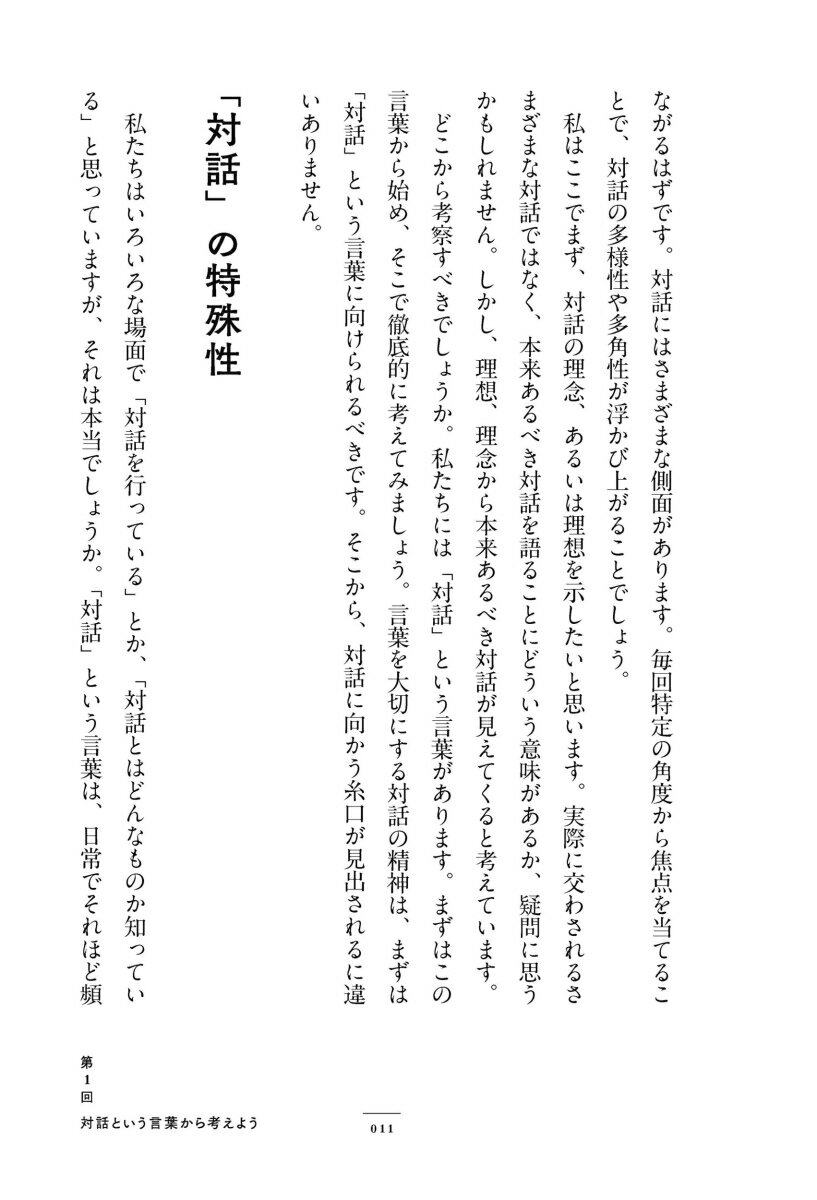 ながるはずです。対話にはさまざまな側面があります。毎回特定の角度から焦点を当てるこ
とで、対話の多様性や多角性が浮かび上がることでしょう。
私はここでまず、対話の理念、あるいは理想を示したいと思います。実際に交わされるさ
まざまな対話ではなく、本来あるべき対話を語ることにどういう意味があるか、疑問に思う
かもしれません。しかし、理想、理念から本来あるべき対話が見えてくると考えています。
どこから考察すべきでしょうか。私たちには「対話」という言葉があります。まずはこの
言葉から始め、そこで徹底的に考えてみましょう。言葉を大切にする対話の精神は、まずは
「対話」という言葉に向けられるべきです。そこから、対話に向かう糸口が見出されるに違
いありません。
「対話」の特殊性
私たちはいろいろな場面で「対話を行っている」とか、「対話とはどんなものか知ってい
る」と思っていますが、それは本当でしょうか。「対話」という言葉は、日常でそれほど頻
第1回
対話という言葉から考えよう
011